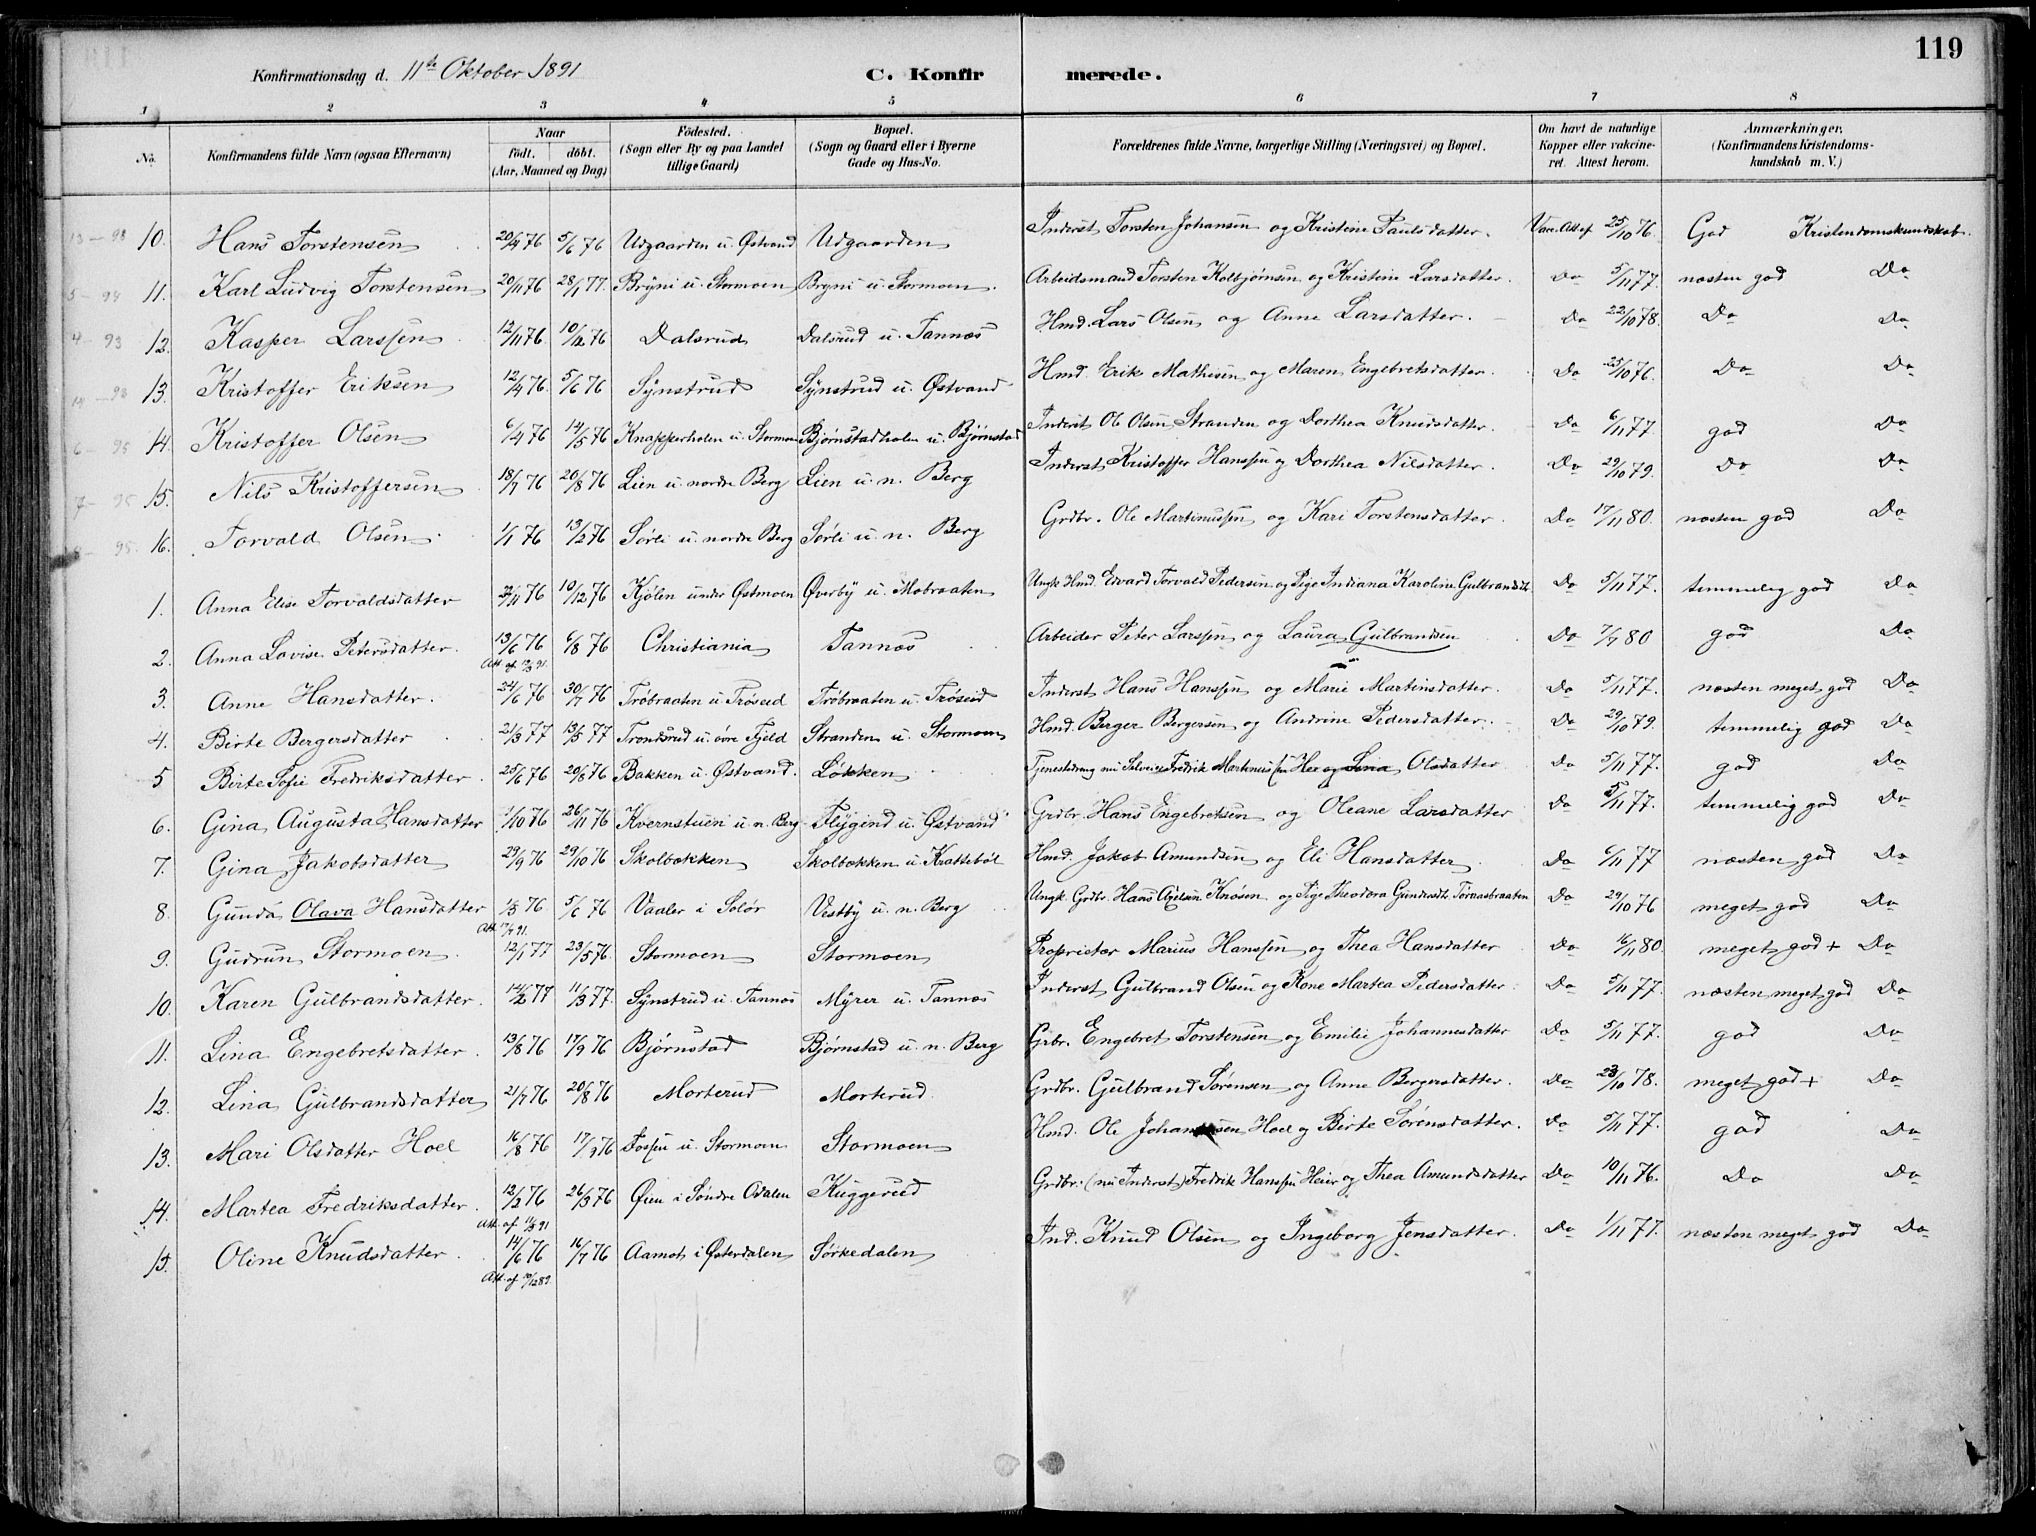 119
Konfirmationsdag d. 11te Oktober 1891 C. Konfirmerede.
1 2 3 4 5 6 7 8
No. Konfirmandens fulde Navn (ogsaa Efternavn) Naar født. døbt. (Aar, Maaned og Dag) Fødested. (Sogn eller By og paa Landet tillige Gaard) Bopæl. (Sogn og Gaard eller i Byerne Gade og Hus-No. Forældrenes fulde Navne, borgerlige Stilling (Næringsvei) og Bopæl. Om havt de naturlige Kopper eller vakcineret. Attest herom. Anmærkninger. (Konfirmandens Kristendomskundskab m. V.)
13 - 93 10. Hans Torstensen 20/4 76 5/6 76 Udgaarden u. Østvand Udgaarden Inderst Torsten Johansen og Kristine Paulsdatter. Vacc. Att. af 25/10 76. God Kristendomskundskab.
5 - 94 11. Karl Ludvig Torstensen 20/11 76 28/1 77. Bryni u. Stormoen Bryni u. Stormoen. Arbeidsmand Torsten Kolbjørnsen og Kristine Larsdatter. Do 5/11 77. næsten god Do
4 - 93 12. Kasper Larssen 12/11 76 10/12 76 Dalsrud Dalsrud u. Tannæs Hmd. Lars Olsen og Anne Larsdatter. Do 22/10 78. Do Do
14 - 93 13. Kristoffer Eriksen 12/4 76. 5/6 76 Synstrud Synstrud u. Østvand Hmd. Erik Mathisen og Maren Engebretsdatter. Do 25/10 76. Do Do
6 - 95 14. Kristoffer Olsen 6/4 76 14/5 76 Knapperholen u. Stormoen Bjørnstadholen u. Bjørnstad Inderst Ole Olsen Stranden og Dorthea Knudsdatter. Do 6/11 77. god Do
7 - 95 15. Nils Kristoffersen 18/7 76 20/8 76 Lien u. nordre Berg Lien u. n. Berg Inderst Kristoffer Hanssen og Dorthea Nilsdatter. Do 29/10 79. Do Do
95. 16. Torvald Olsen 1/1 76 13/2 76 Sørli u. nordre Berg Sørli u. n. Berg Grdbr. Ole Martinussen og Kari Torstensdatter. Do 17/11 80. næsten god Do
1. Anna Elise Torvaldsdatter /11 76 10/12 76 Kjølen under Østmoen Øverby u. Mobraaten Ungk. Hmd. Edvard Torvald Pedersen og Pige Indiana Karoline Gulbrandsdt. Do 5/11 77. temmelig god Do
2. Anna Lovise Petersdatter. 13/6 76 6/8 76 Christiania Tannæs Arbeider Peter Larssen og Laura Gulbrandsen Do 7/7 80 god Do
Att. af 91.
3. Anne Hansdatter. 24/6 76 30/7 76 Trøbraaten u. Trøseid Trøbraaten u. Trøseid Inderst Hans Hanssen og Marie Martinsdatter. Do 5/11 77. næsten meget god Do
4. Birte Bergersdatter 21/3 77 13/5 77 Trondsrud u. øvre Fjeld Stranden u. Stormoen Hmd. Berger Bergersen og Andrine Pedersdatter. Do 29/10 79. temmelig god Do
5 Birte Sofie Fredriksdatter. 25/6 76 20/8 76 Bakken u. Østvand. Løkken Tjenestdreng nu Selveier Fredrik Martinussen Hee og Lina Olsdatter Do 5/11 77. god Do
6. Gina Augusta Hansdatter /10 76 26/11 76 Kvernstuen u. n. Berg Flygind u. Østvand Grdbr. Hans Engebretsen og Oleane Larsdatter Do 5/11 77. temmelig god Do
7. Gina Jakobsdatter 23/9 76 29/10 76 Skolbækken Skolbækken u. Krattebøl Hmd. Jakob Amundsen og Eli Hansdatter. Do 6/11 77 næsten god Do
8. Gunda Olava Hansdatter /3 76 5/6 76 Vaaler i Solør Vestby u. n. Berg Ungk. Grdbr. Hans Axelsen Knøsen og Pige Theodora Gundersdt. Torvasbraaten Do 29/10 76 meget god Do
Att. 91.
9. Gudrun Stormoen. 12/1 77 23/5 76. Stormoen Stormoen Proprietær Marius Hanssen og Thea Hansdatter Do 16/11 80. meget god + Do
10. Karen Gulbrandsdatter. 14/2 77 11/3 77. Synstrud u. Tannæs Myrer u. Tannæs Inderst Gulbrand Olsen og Kone Martea Pedersdatter. Do 5/11 77. næsten meget god Do
11. Lina Engebretsdatter. 13/8 76 17/9 76 Bjørnstad Bjørnstad u. n. Berg Grbr. Engebret Torstensen og Emilie Johannesdatter Do 5/11 77. god Do
12. Lina Gulbrandsdatter 21/7 76 20/8 76 Morterud Morterud. Grdbr. Gulbrand Sørensen og Anne Bergersdatter. Do 23/10 78. meget god + Do
13. Mari Olsdatter Hoel 16/8 76 17/9 76 Fossen u. Stormoen Stormoen Hmd. Ole Johannssen Hoel og Birte Sørensdatter. Do 5/11 77. god Do
14. Martea Fredriksdatter. 12/2 76 26/3 76 Øien i Søndre Odalen Kuggerud Grdbr. (nu Inderst) Fredrik Hanssen Heier og Thea Amundsdatter Do 10/11 76. Do Do
Att. af 91
15. Oline Knudsdatter. 14/6 76 16/7 76 Aamot i Østerdalen Sørkedalen Ind. Knud Olsen og Ingeborg Jensdatter. Do 1/11 77. næsten meget god Do
Att. af 89.